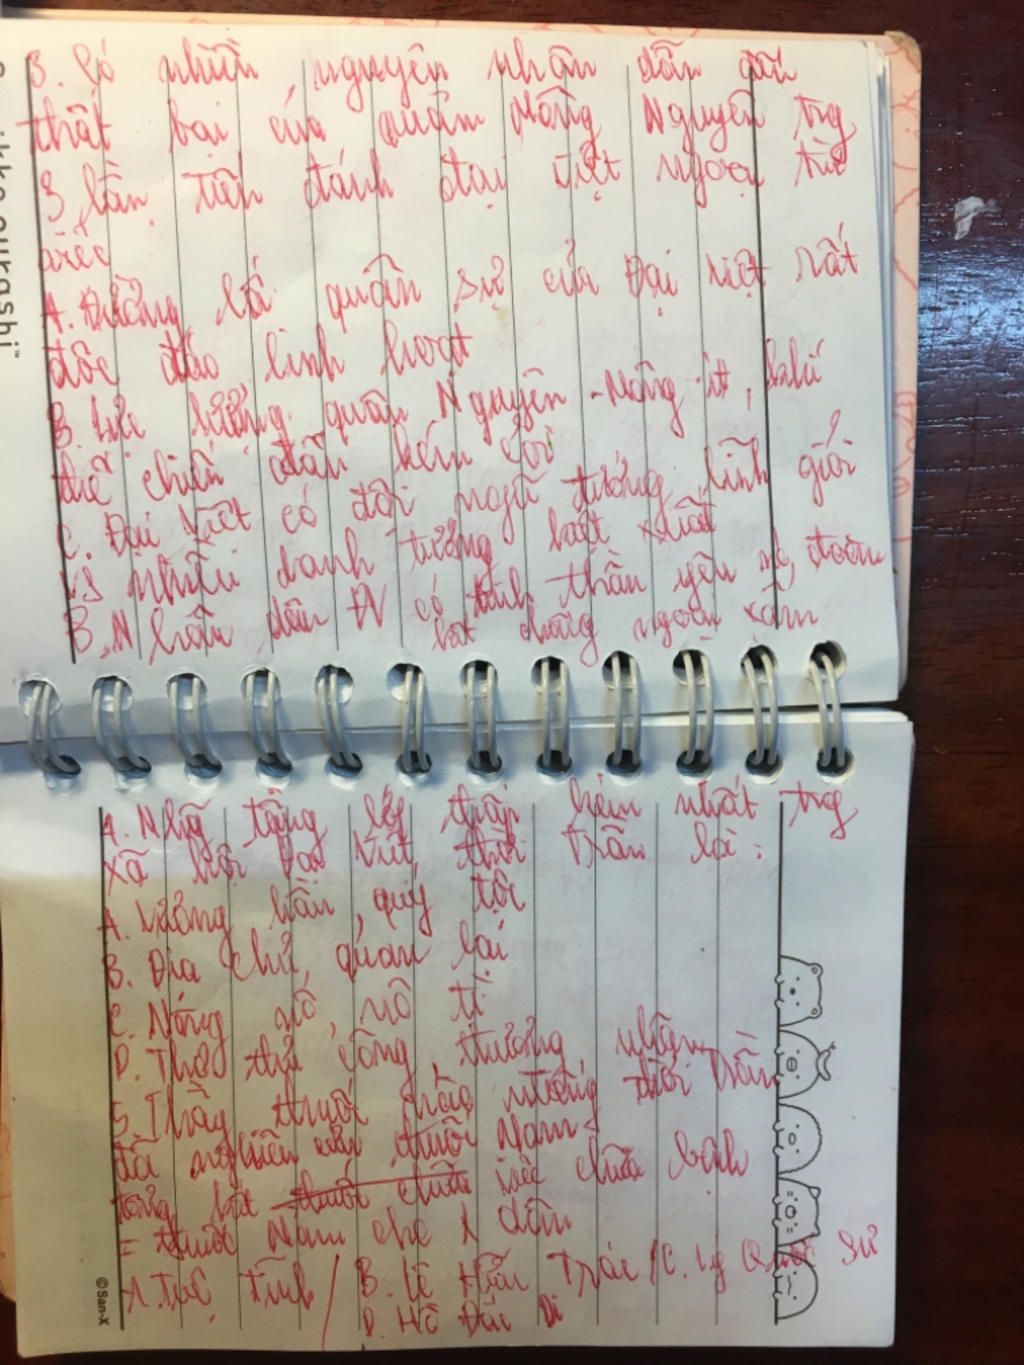 3. Có nhiều nguyên nhân dẫn đến
thất bại của quân Mông Nguyên trg
3 lần tấn đánh Đại Việt ngoại trừ
việc
A. Đường lối quân sự của Đại Việt rất
độc đáo linh hoạt
B. Lực lượng quân Nguyên - Mông ít, khí
thế chiến đấu kém cỏi
C. Đại Việt có đội ngũ tướng lĩnh giỏi
vs nhiều danh tướng kiệt xuất
B. Nhân dân ĐV có tinh thần yêu nc, đoàn
kết chống ngoại xâm
4. Nhg tầng lớp thấp kém nhất trg
xã hội Đại Việt thời Trần là:
A. Vương hầu, quý tộc
B. Địa chủ, quan lại
C. Nông nô, nô tì
D. Thợ thủ công, thương nhân
5. Thầy thuốc nào thời Trần
đã nghiên cứu thuốc Nam
tổng kết thuốc chữa việc chữa bệnh
= thuốc Nam cho dân
A. Tuệ Tĩnh / B. Lê Hữu Trác / C. Lý Quốc Sư
D. Hồ Đắc Di
ikko gurashi™
©San-X